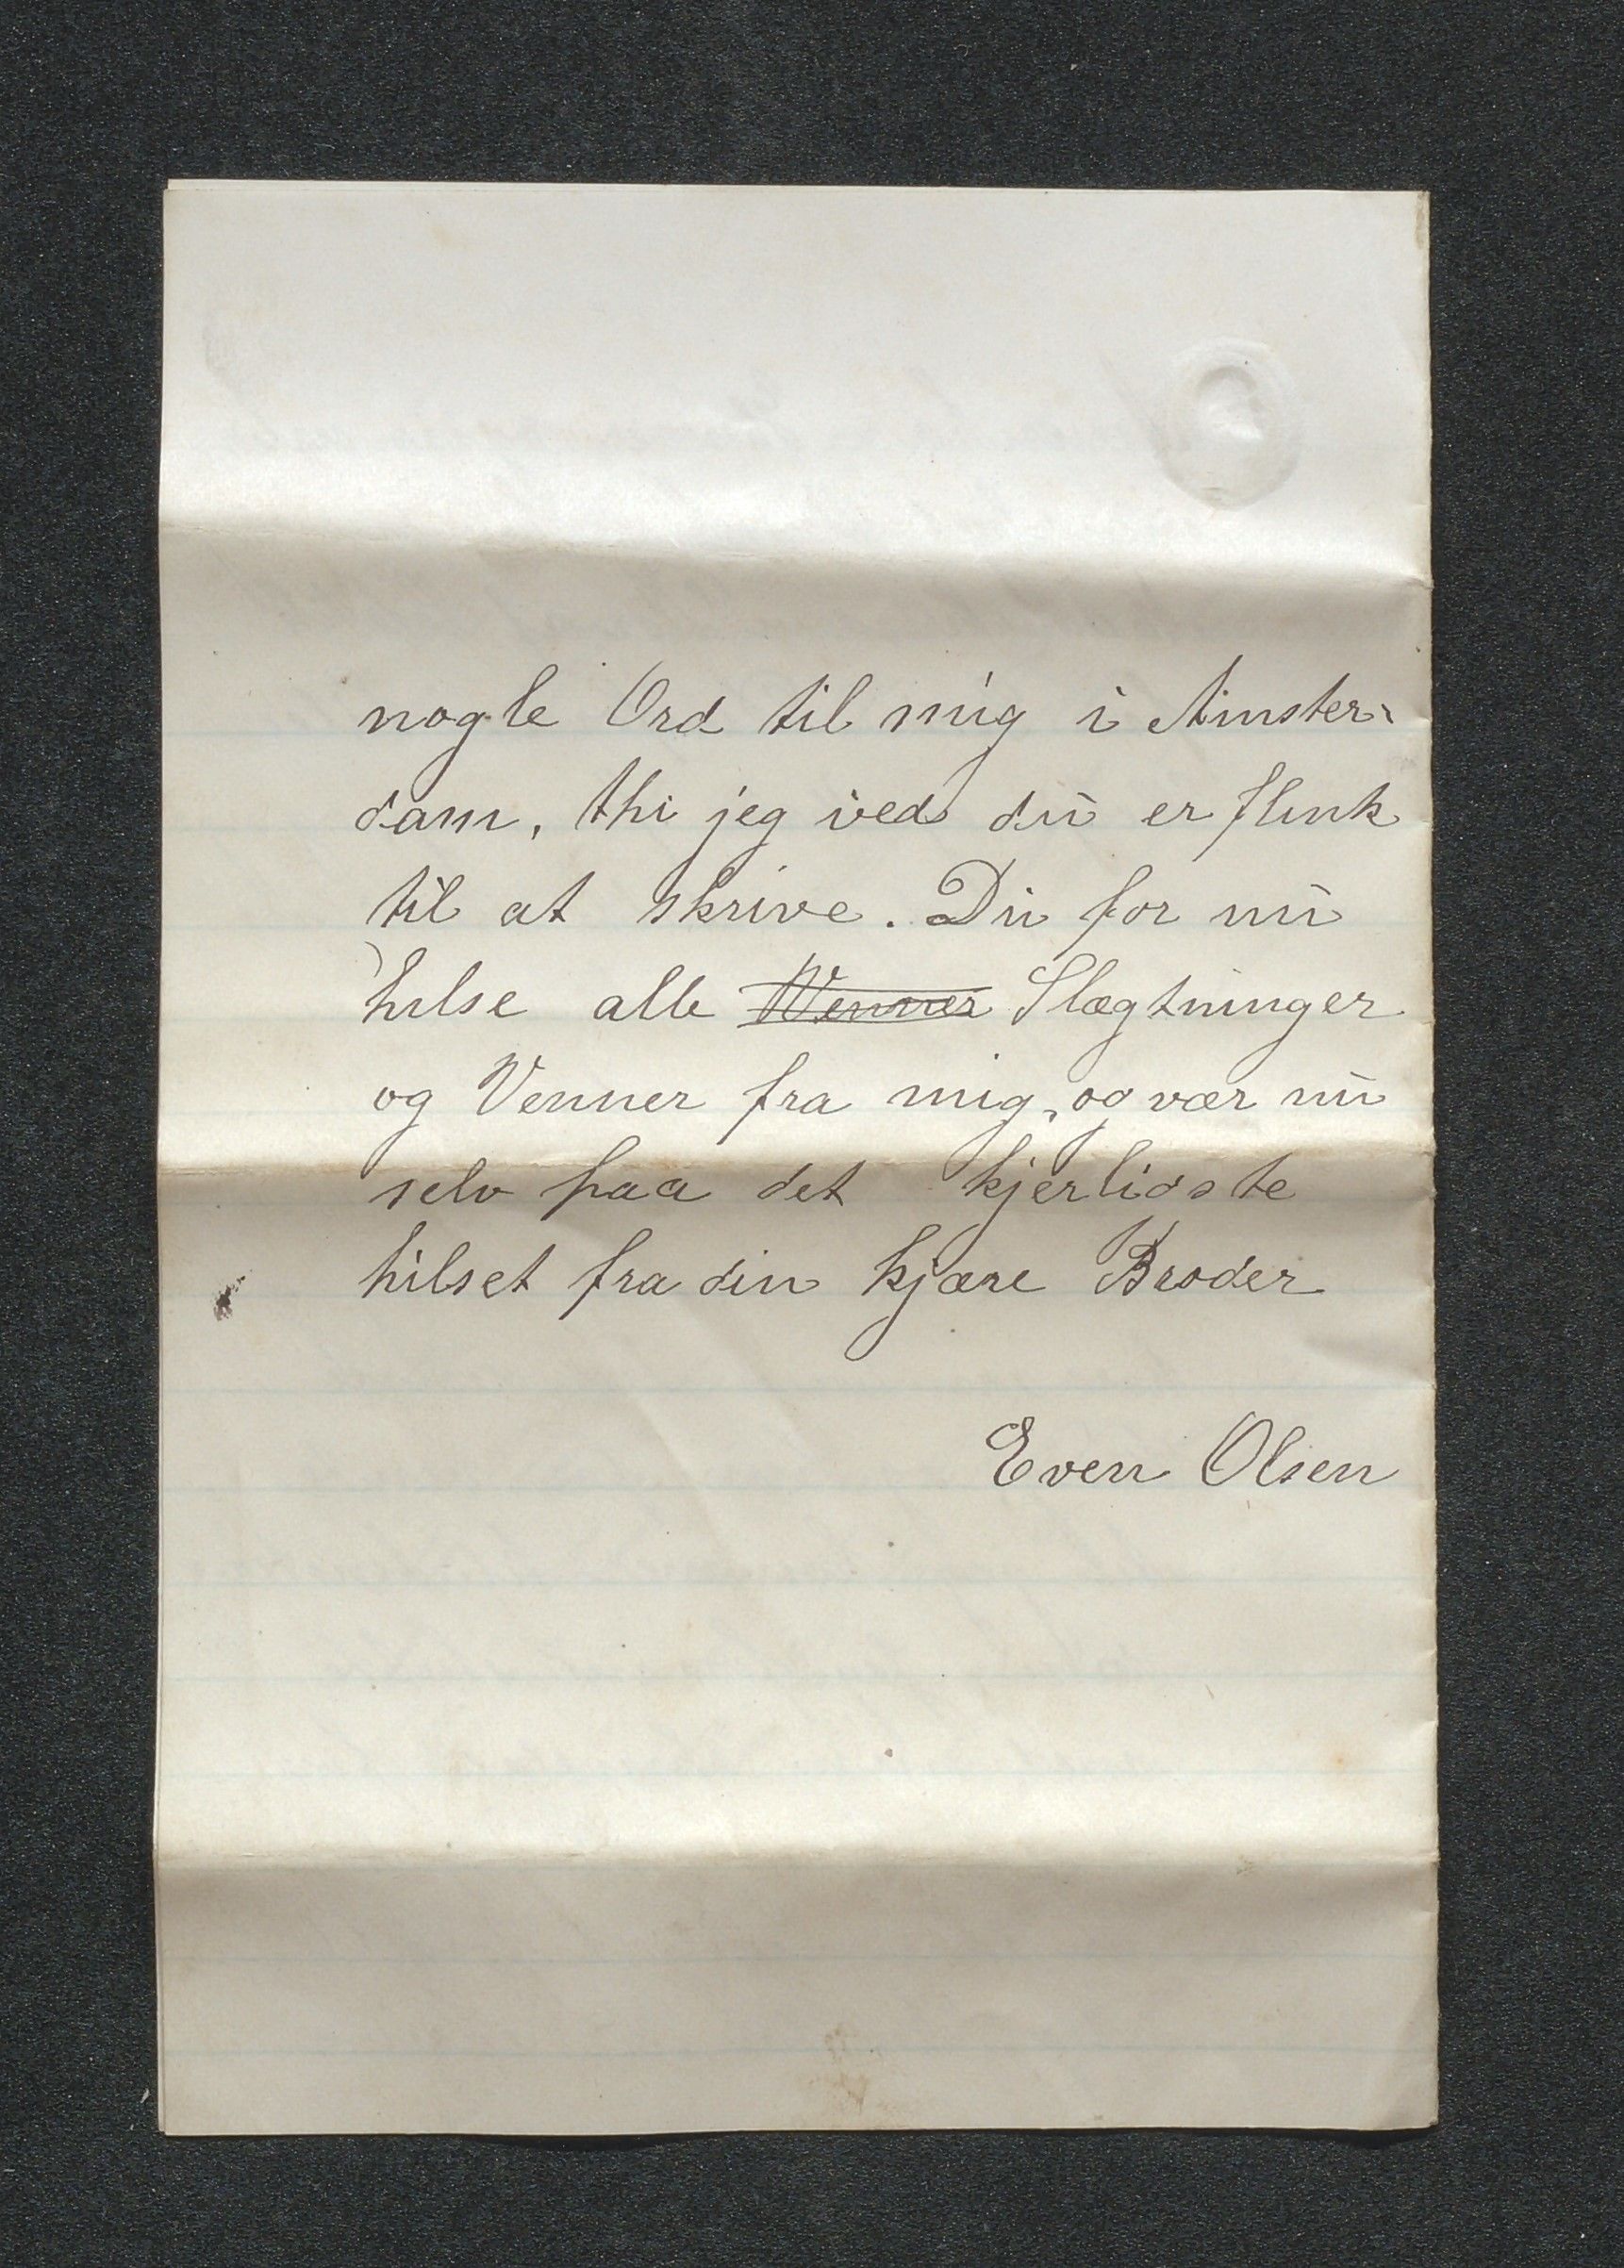 nogle Ord til mig i Amster-
dam, thi jeg ved du er flink
til at skrive. Du for nu
hilse alle Venner Slægtninger
og Venner fra mig, og vær nu
selv paa det kjerligste
hilset fra din kjære Broder
Even Olsen